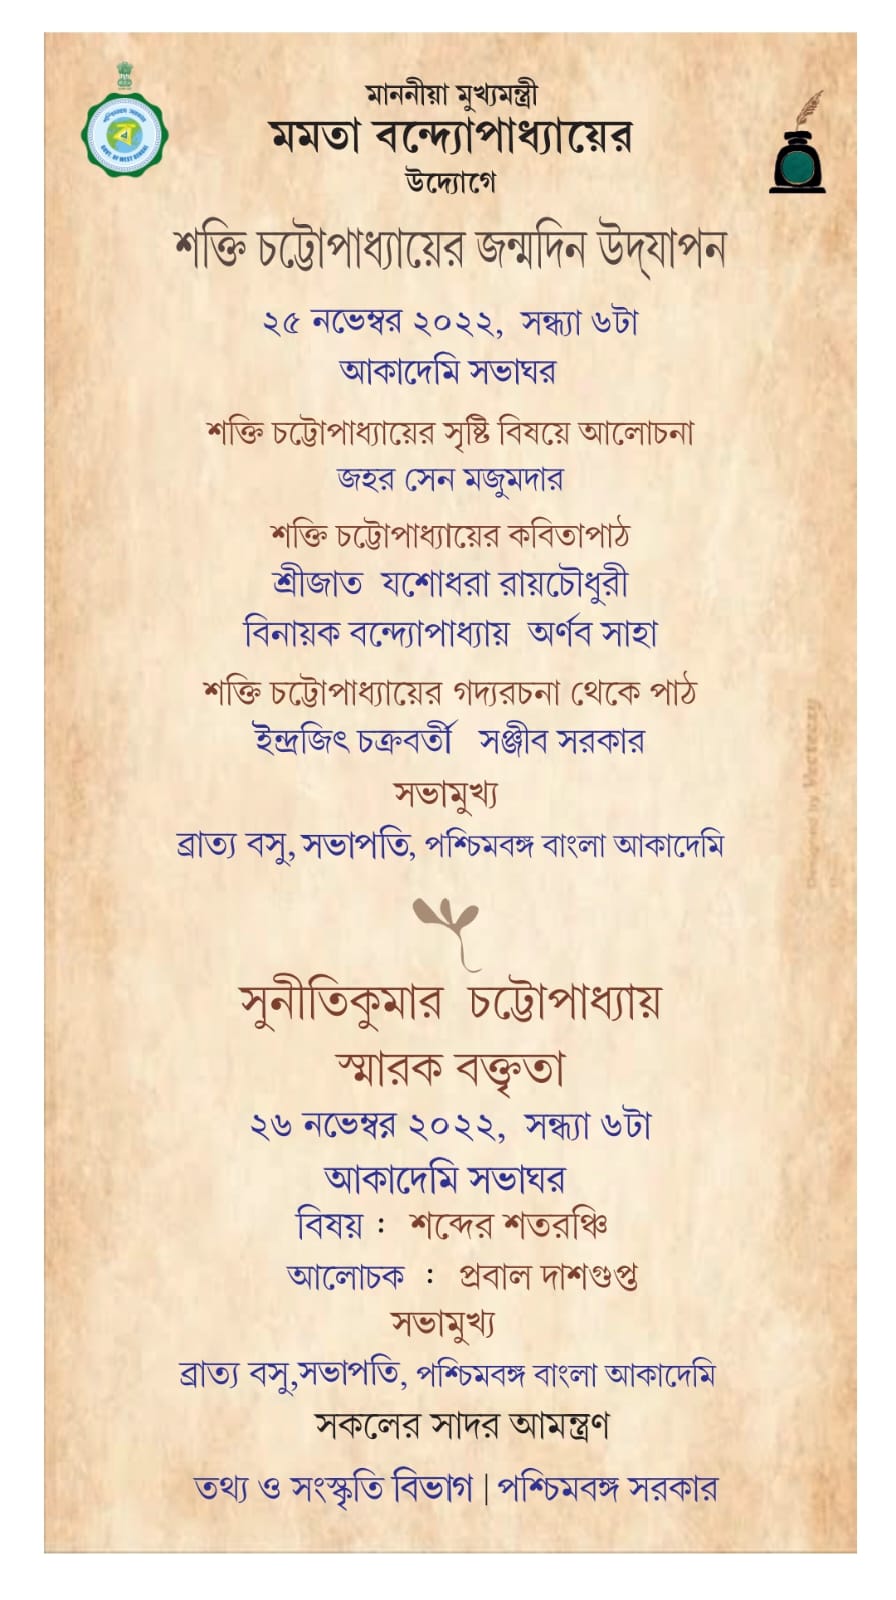 মাননীয়া মুখ্যমন্ত্রী
মমতা বন্দ্যোপাধ্যায়ের
উদ্যোগে
GOVT. OF WEST BENGAL
শক্তি চট্টোপাধ্যায়ের জন্মদিন উদ্‌যাপন
২৫ নভেম্বর ২০২২, সন্ধ্যা ৬টা
আকাদেমি সভাঘর
শক্তি চট্টোপাধ্যায়ের সৃষ্টি বিষয়ে আলোচনা
জহর সেন মজুমদার
শক্তি চট্টোপাধ্যায়ের কবিতাপাঠ
শ্রীজাত যশোধরা রায়চৌধুরী
বিনায়ক বন্দ্যোপাধ্যায় অর্ণব সাহা
শক্তি চট্টোপাধ্যায়ের গদ্যরচনা থেকে পাঠ
ইন্দ্রজিৎ চক্রবর্তী সঞ্জীব সরকার
সভামুখ্য
ব্রাত্য বসু, সভাপতি, পশ্চিমবঙ্গ বাংলা আকাদেমি
সুনীতিকুমার চট্টোপাধ্যায়
স্মারক বক্তৃতা
২৬ নভেম্বর ২০২২, সন্ধ্যা ৬টা
আকাদেমি সভাঘর
বিষয় : শব্দের শতরঞ্চি
আলোচক : প্রবাল দাশগুপ্ত
সভামুখ্য
ব্রাত্য বসু,সভাপতি, পশ্চিমবঙ্গ বাংলা আকাদেমি
সকলের সাদর আমন্ত্রণ
তথ্য ও সংস্কৃতি বিভাগ | পশ্চিমবঙ্গ সরকার